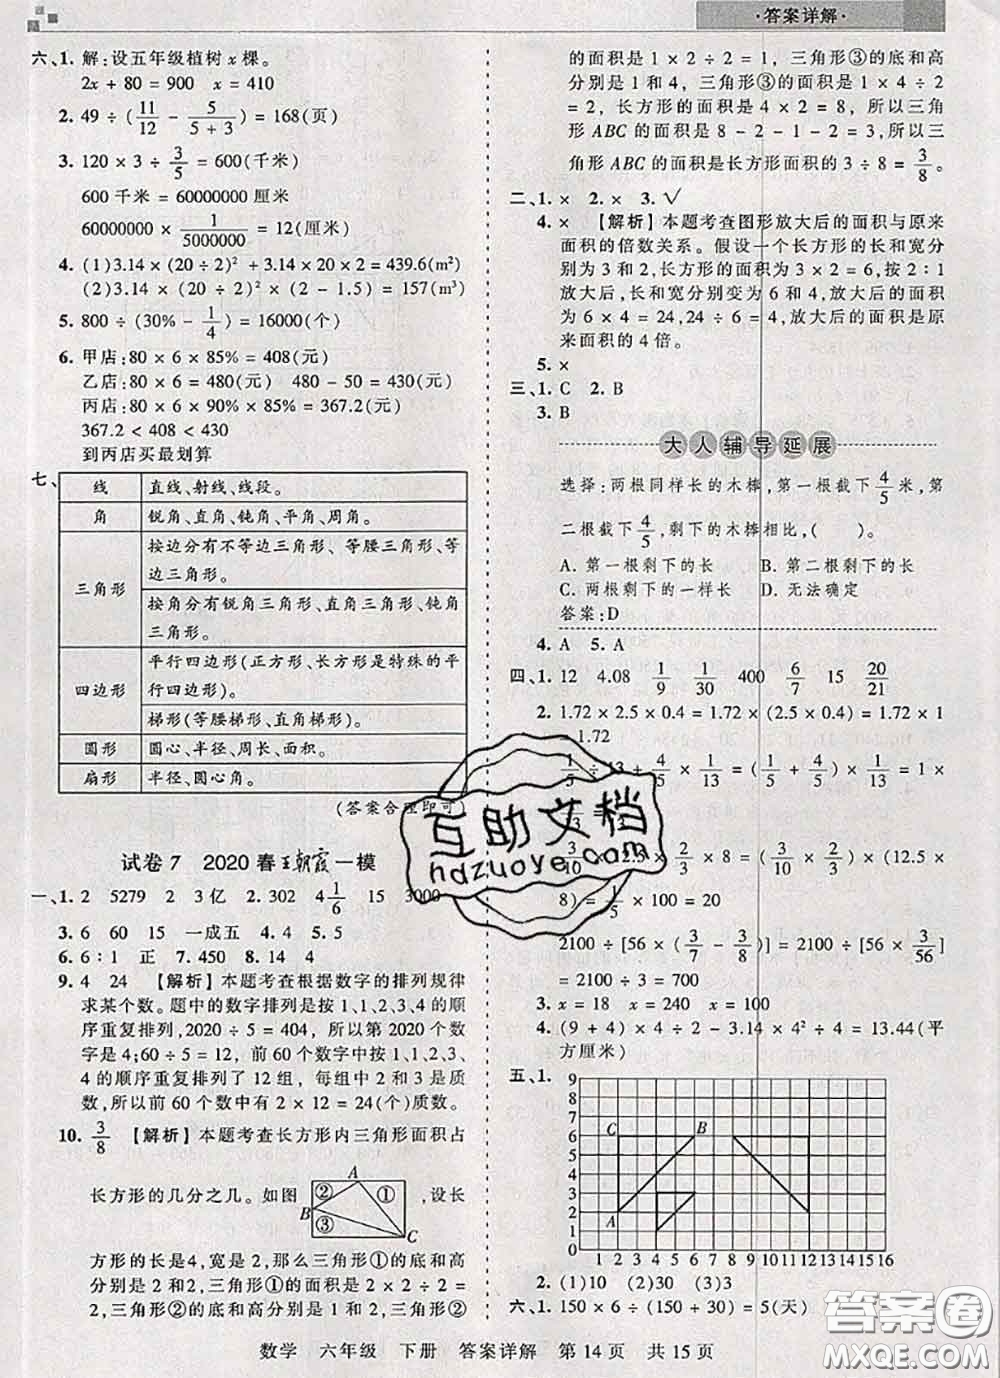 ·答案详解·
六、1. 解:设五年级植树 x 棵。
2x + 80 = 900　x = 410
2. 49 ÷ (11/12 - 5/(5 + 3)) = 168(页)
3. 120 × 3 ÷ 3/5 = 600(千米)
600 千米 = 60000000 厘米
60000000 × 1/5000000 = 12(厘米)
4. (1)3.14 × (20 ÷ 2)² + 3.14 × 20 × 2 = 439.6(m²)
(2)3.14 × (20 ÷ 2)² × (2 - 1.5) = 157(m³)
5. 800 ÷ (30% - 1/4) = 16000(个)
6. 甲店:80 × 6 × 85% = 408(元)
乙店:80 × 6 = 480(元)　480 - 50 = 430(元)
丙店:80 × 6 × 90% × 85% = 367.2(元)
367.2 < 408 < 430
到丙店买最划算
七、
线　直线、射线、线段。
角　锐角、直角、钝角、平角、周角。
三角形　按边分有不等边三角形、等腰三角形、等
边三角形。
按角分有锐角三角形、直角三角形、钝角
三角形。
四边形　平行四边形(正方形、长方形是特殊的平
行四边形)。
梯形(等腰梯形、直角梯形)。
圆形　圆心、半径、周长、面积。
扇形　半径、圆心角。
(答案合理即可)
试卷 7　2020 春王朝霞一模
一、1. 2　5279　2　3亿　2. 302　4 1/6　15　3000
3. 6　60　15　一成五　4. 4　5. 5
6. 6∶1　正　7. 450　8. 14　4
9. 4　24　【解析】本题考查根据数字的排列规律
求某个数。题中的数字排列是按 1、1、2、3、4 的顺
序重复排列,2020 ÷ 5 = 404, 所以第 2020 个数
字是 4;60 ÷ 5 = 12, 前 60 个数字中按 1、1、2、3、
4 的顺序重复排列了 12 组, 其中 2 和 3 是质
数,所以前 60 个数中有 2 × 12 = 24(个)质数。
10. 3/8　【解析】本题考查长方形内三角形面积占
长方形的几分之几。如图
A
②
①
B
③
C
,设长
方形的长是4,宽是 2,那么三角形①的底和高
分别是 2 和2,三角形①的面积是 2 × 2 ÷ 2 =
2,三角形②的底和高分别是 1 和 2,三角形②
的面积是 1 × 2 ÷ 2 = 1, 三角形③的底和高
分别是 1 和 4, 三角形③的面积是 1 × 4 ÷ 2
= 2, 长方形的面积是 2 × 4 = 8, 所以三角
形 ABC 的面积是 8 - 2 - 1 - 2 = 3,所以三
角形 ABC 的面积是长方形面积的 3 ÷ 8 = 3/8。
二、1. ×　2. ×　3. √
4. ×　【解析】本题考查图形放大后的面积与原来
面积的倍数关系。假设一个长方形的长和宽分
别为 3 和 2,原来的面积为 3 × 2 = 6,按 2∶1
放大后,长和宽分别变为 6 和 4,放大后的面积
为 6 × 4 = 24,24 ÷ 6 = 4,放大后的面积是原
来面积的 4 倍。
5. ×
三、1. C　2. B
3. B
大人辅导延展
选择:两根同样长的木棒,第一根截下 4/5 米,第
二根截下 4/5,剩下的木棒相比,(　)。
A. 第一根剩下的长　B. 第二根剩下的长
C. 两根剩下的一样长　D. 无法确定
答案:D
4. A　5. A
四、1. 12　4.08　1/9　1/30　400　6/7　15　20/21
2. 1.72 × 2.5 × 0.4 = 1.72 × (2.5 × 0.4) = 1.72 × 1
= 1.72
1/5 ÷ 13 + 4/5 × 1/13 = (1/5 + 4/5) × 1/13 = 1 ×
8) = 1/5 × 100 = 20
2100 ÷ [56 × (3/7 - 3/8)] = 2100 ÷ [56 × 3/56]
= 2100 ÷ 3 = 700
3. x = 18　x = 240　x = 100
4. (9 + 4) × 4 ÷ 2 - 3.14 × 4² ÷ 4 = 13.44(平
方厘米)
五、1.
9
8
7
6
5
4
3
2
1
0
C
B
A
1 2 3 4 5 6 7 8 9 10 11 12 13 14 15 16
2. (1)10　(2)30　(3)3
六、1. 150 × 6 ÷ (150 + 30) = 5(天)
数学　六年级　下册　答案详解　第 14 页　共 15 页
互助文档
hdzuoye.com
答案圈
MXQE.COM